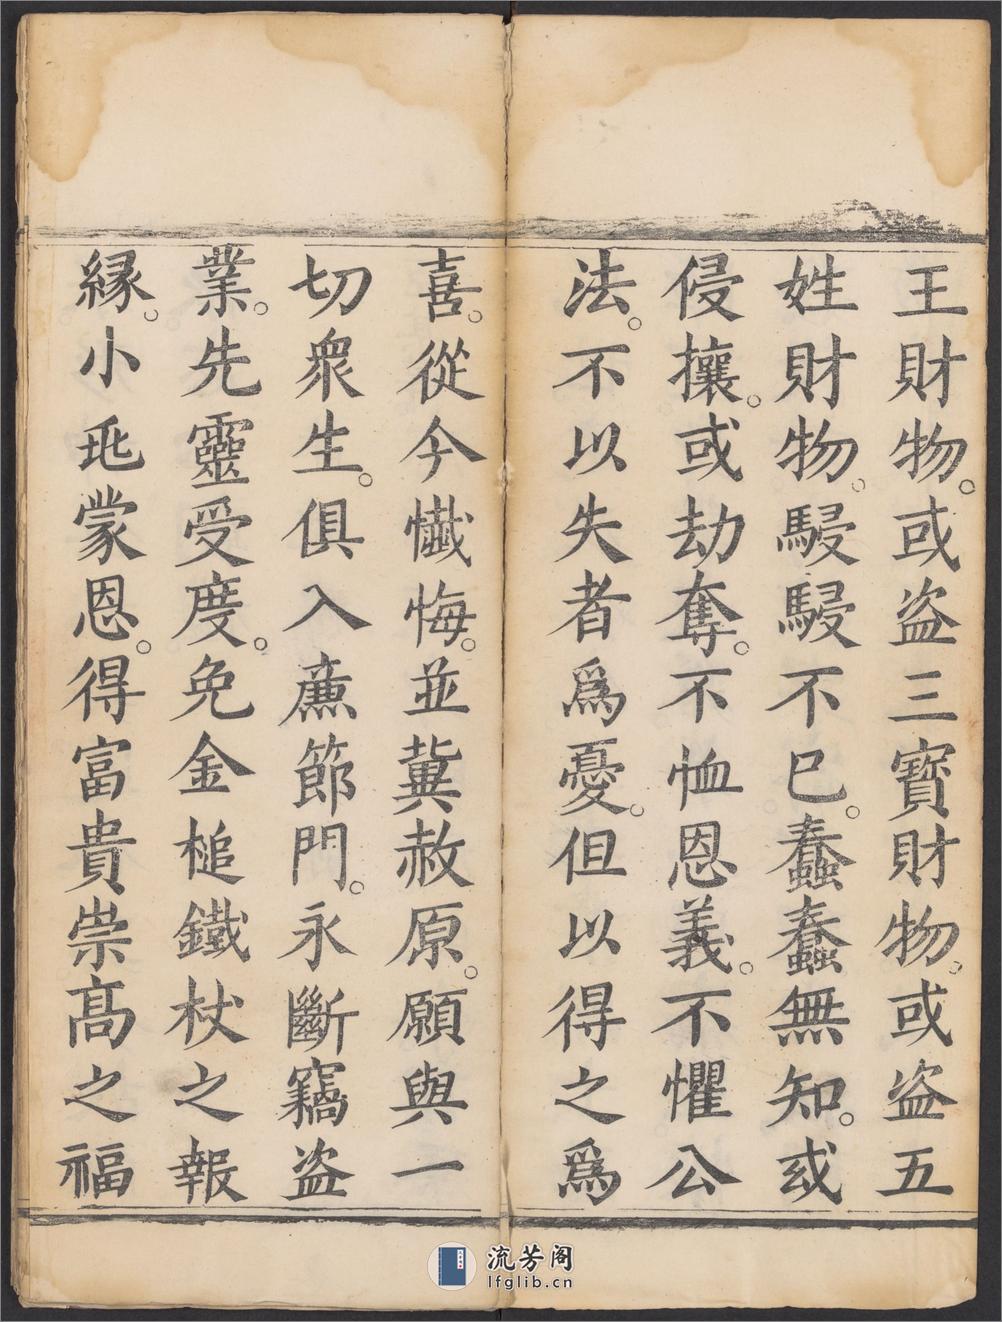 王財物。或盗三寶財物。或盗五
姓財物。駸駸不已。蠢蠢無知。或
侵攘。或劫奪。不恤恩義。不懼公
法。不以失者爲憂。但以得之爲
喜。從今懺悔。並冀赦原。願與一
切衆生。俱入廉節門。永斷竊盗
業。先靈受度。免金槌鐵杖之報
縁。小兆蒙恩。得富貴崇髙之福
流芳阁
lfglib.cn